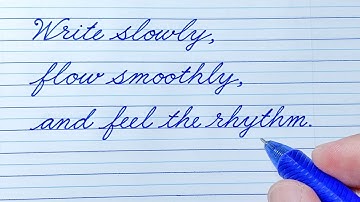 Write slowly,
flow smoothly,
and feel the rhythm.